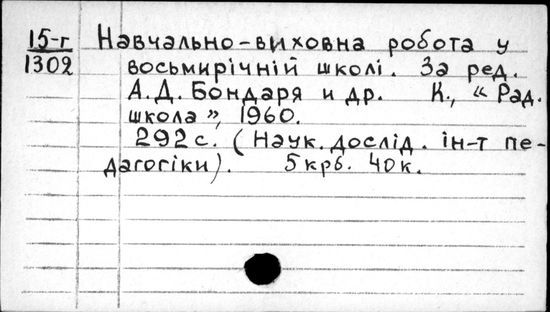 15-г
1302
Навчально-виховна робота у
восьмирічній школі. За ред.
А.Д. Бондаря и др. К., „Рад.
школа”, 1960.
292 с. (Наук. дослід. ін-т пе-
дагогіки). 5крб. 40к.